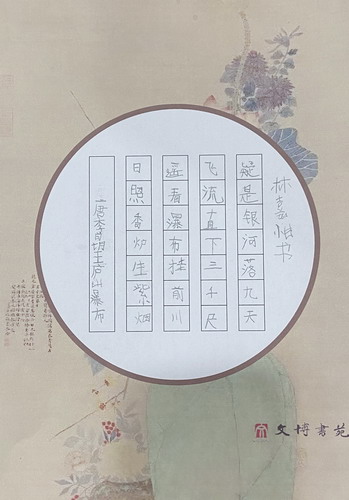 唐李白望庐山瀑布
日照香炉生紫烟
遥看瀑布挂前川
飞流直下三千尺
疑是银河落九天
林嘉书
文博書苑